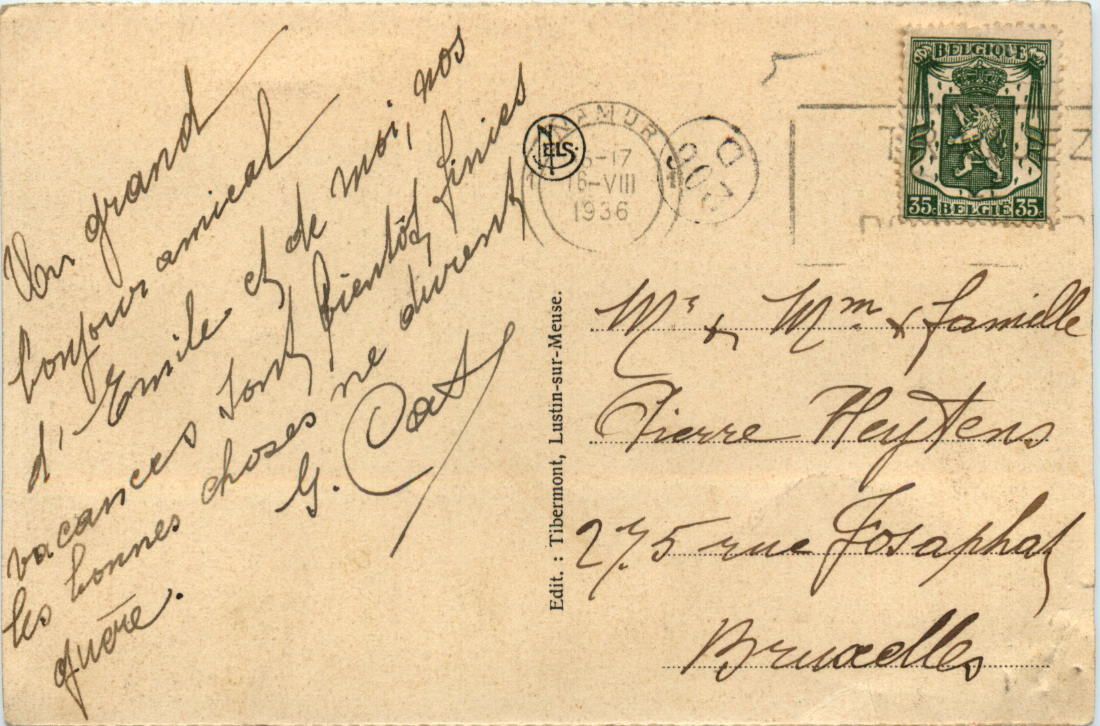 Un grand
bonjour amical
d'Emile et de moi, nos
vacances sont bientôt finies
les bonnes choses ne durent
guère.
G. Cat
NELS
NAMUR
16-VIII
1936
D
906
BELGIQUE
35c BELGIË 35c
Edit. : Tibermont, Lustin-sur-Meuse.
Mr & Mm & famille
Pierre Heytens
275 rue Josaphat
Bruxelles